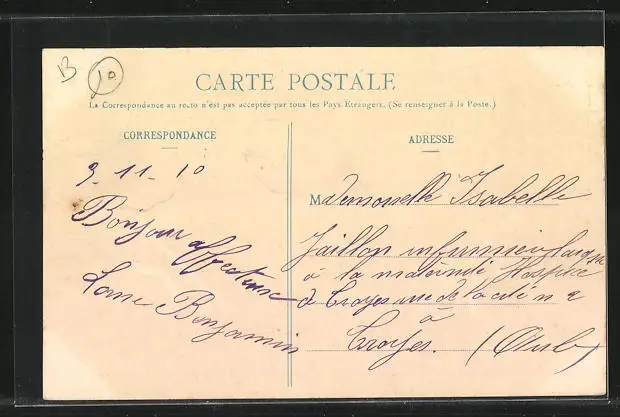 B 10
CARTE POSTALE
La Correspondance au recto n'est pas acceptée par tous les Pays Étrangers. (Se renseigner à la Poste.)
CORRESPONDANCE
ADRESSE
9-11-10
Bonjour affectueux
Benjamin
Mademoiselle Isabelle
Jaillon
à la maternité Hospice
de Troyes rue de la cité n 2
à
Troyes. (Aube)